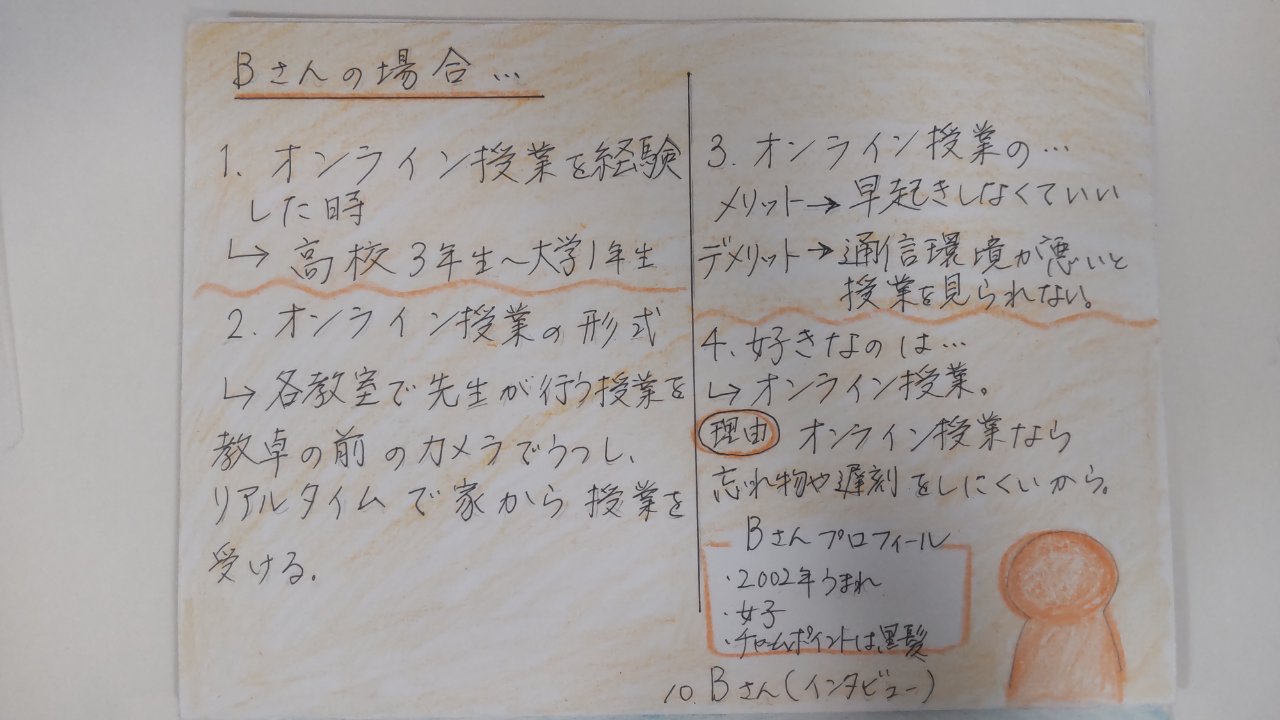 Bさんの場合…
1. オンライン授業を経験
した時
↳ 高校3年生～大学1年生
2. オンライン授業の形式
↳ 各教室で先生が行う授業を
教卓の前のカメラでうつし、
リアルタイムで家から授業を
受ける.
3. オンライン授業の…
メリット→早起きしなくていい
デメリット→通信環境が悪いと
授業を見られない。
4. 好きなのは…
↳ オンライン授業。
理由 オンライン授業なら
忘れ物や遅刻をしにくいから。
Bさんプロフィール
・2002年うまれ
・女子
・チャームポイントは黒髪
10. Bさん(インタビュー)